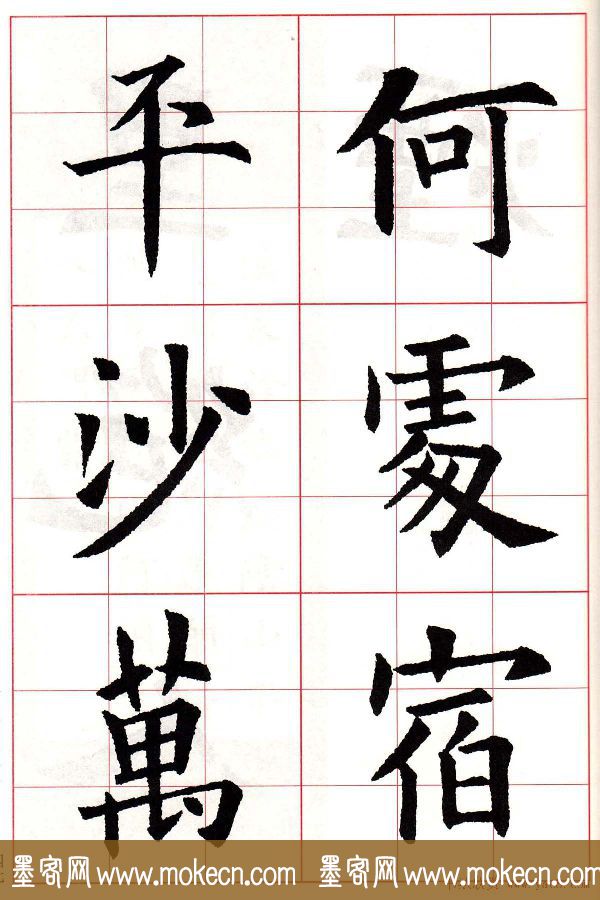 何處宿
平沙萬
墨客网 www.mokecn.com 墨客网 www.mokecn.com